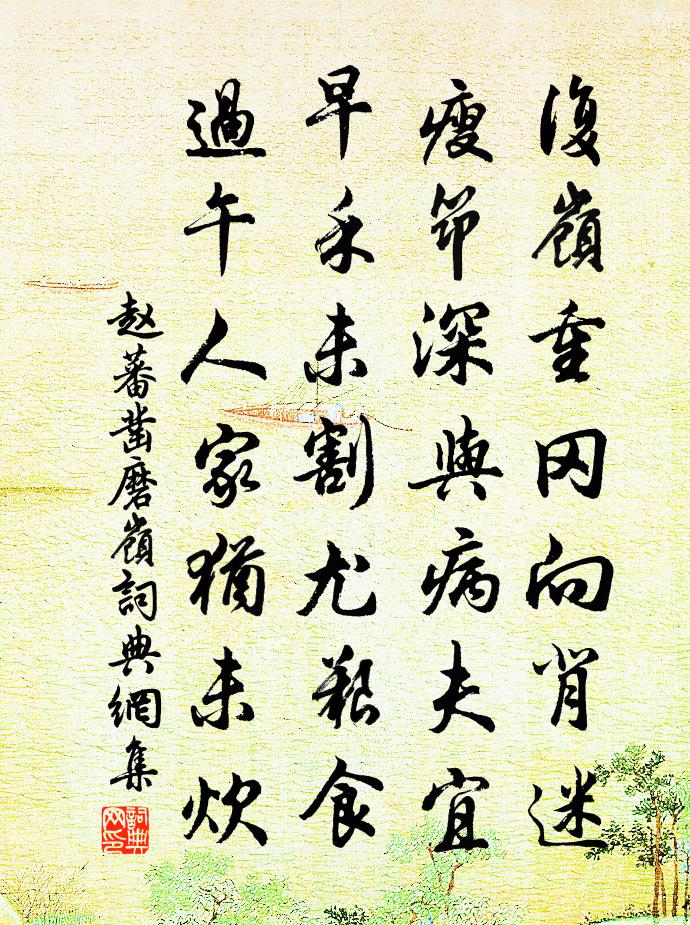 復嶺重冈向肖迷
瘦笻深與病夫宜
早禾未割尤艱食
過午人家猶未炊
赵蕃凿磨嶺詞典網集
詞典网印